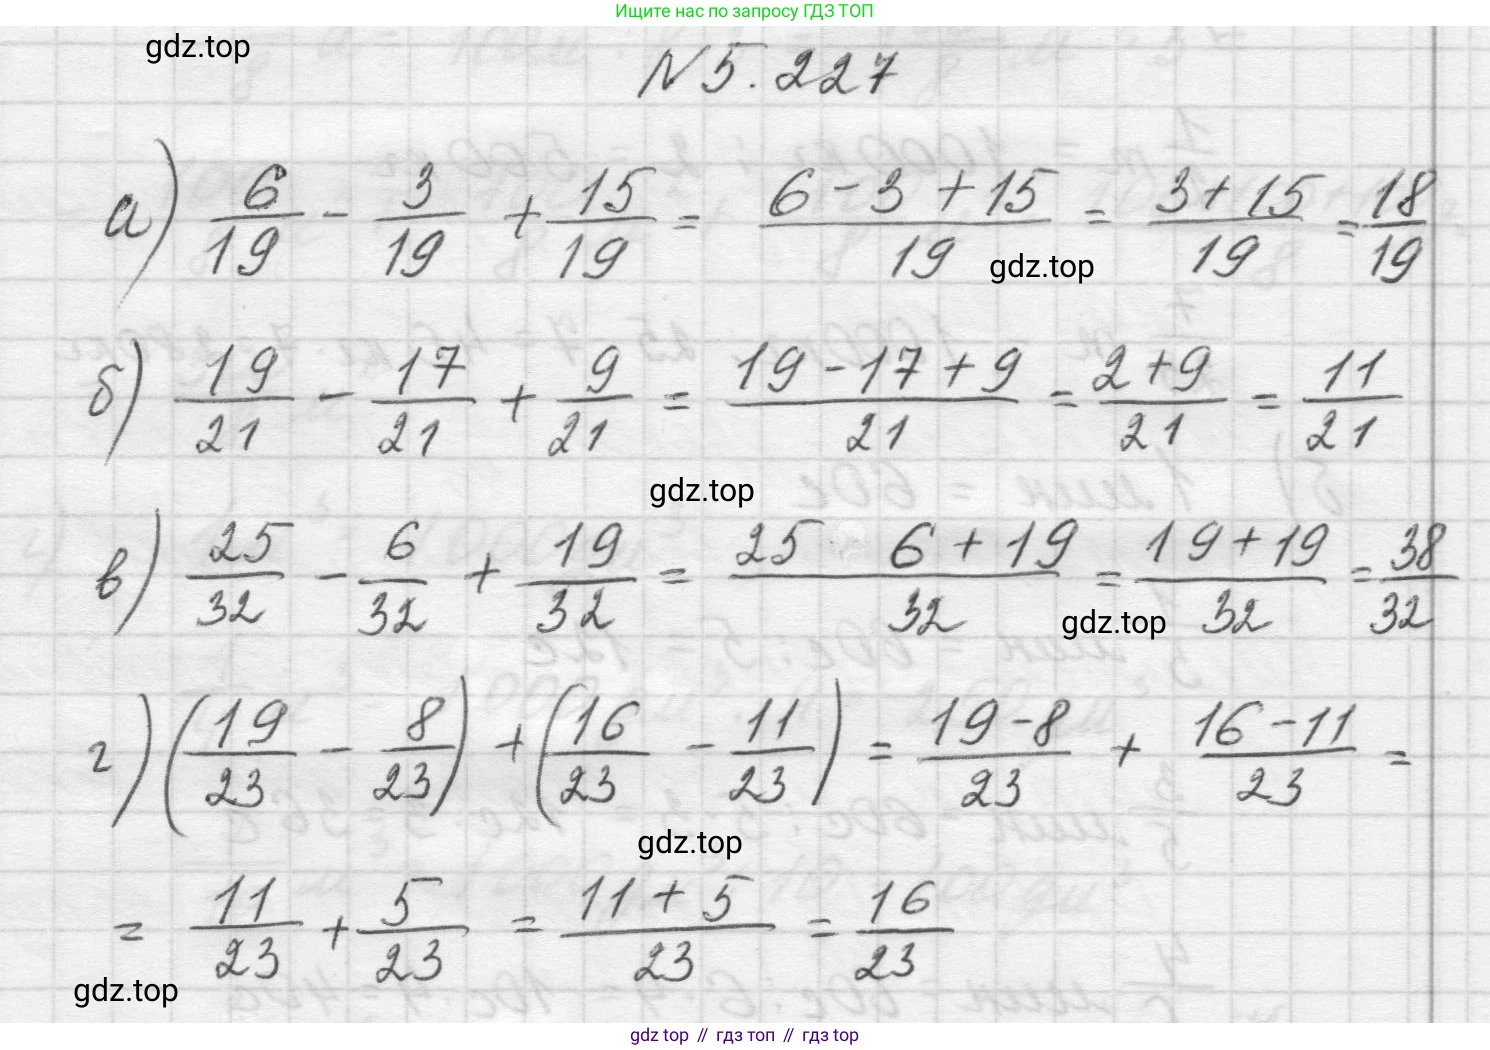 Ищите нас по запросу ГДЗ ТОП
gdz.top
N 5.227
а) 6/19 - 3/19 + 15/19 = (6 - 3 + 15)/19 = (3 + 15)/19 = 18/19
gdz.top
б) 19/21 - 17/21 + 9/21 = (19 - 17 + 9)/21 = (2 + 9)/21 = 11/21
gdz.top
в) 25/32 - 6/32 + 19/32 = (25 6 + 19)/32 = (19 + 19)/32 = 38/32
gdz.top
г) (19/23 - 8/23) + (16/23 - 11/23) = (19 - 8)/23 + (16 - 11)/23 =
gdz.top
= 11/23 + 5/23 = (11 + 5)/23 = 16/23
gdz.top
gdz top // гдз топ // gdz top